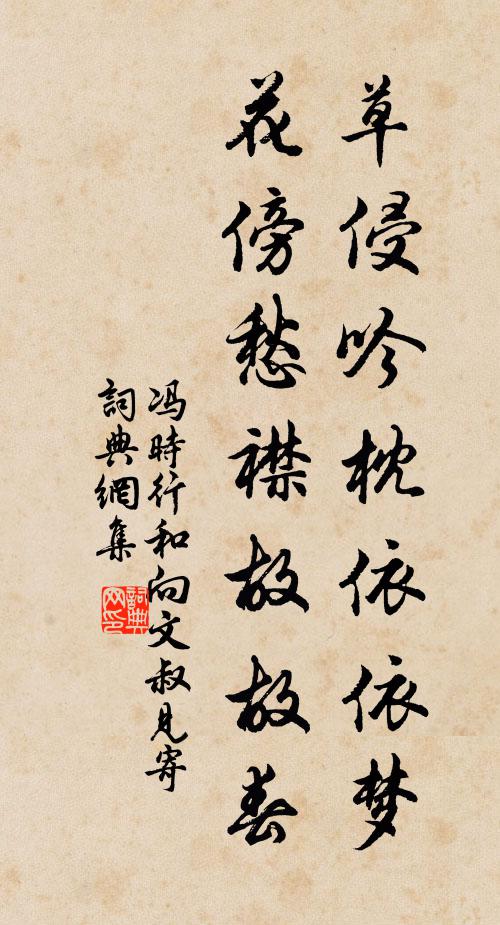 草侵吟枕依依梦
花傍愁襟故故春
冯時行和向文叔見寄
詞典網集
詞典网印